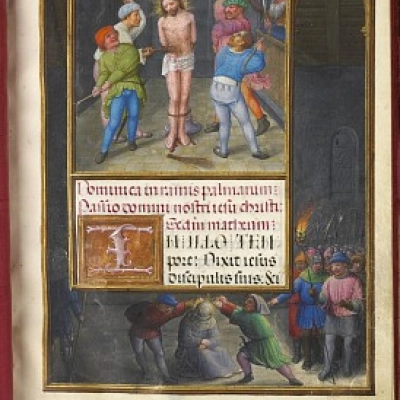 Dominica in ramis palmarum:
Passio domini nostri iesu christi:
Secun matheum:
IN ILLO TEM
pore: Dixit iesus
discipulis suis: Sci